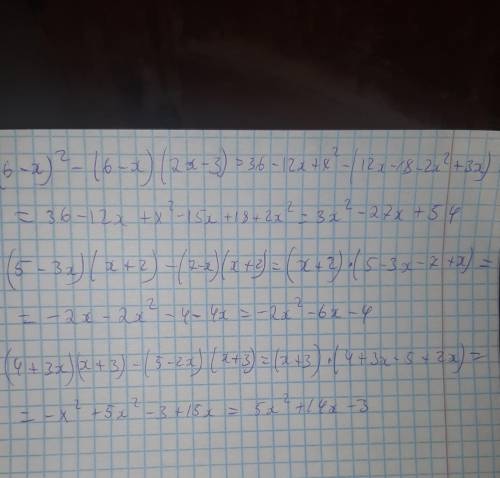 (6-x)² - (6-x)(2x-3) = 36-12x+x² - (12x-18-2x²+3x)
= 36-12x+x²-15x+18+2x² = 3x²-27x+54
(5-3x)(x+2)-(7-x)(x+2)=(x+2)·(5-3x-7+x)=
= -2x-2x²-4-4x = -2x²-6x-4
(4+3x)(x+3)-(5-2x)(x+3)=(x+3)·(4+3x-5+2x)=
= -x²+5x²-3+15x = 5x²+14x-3